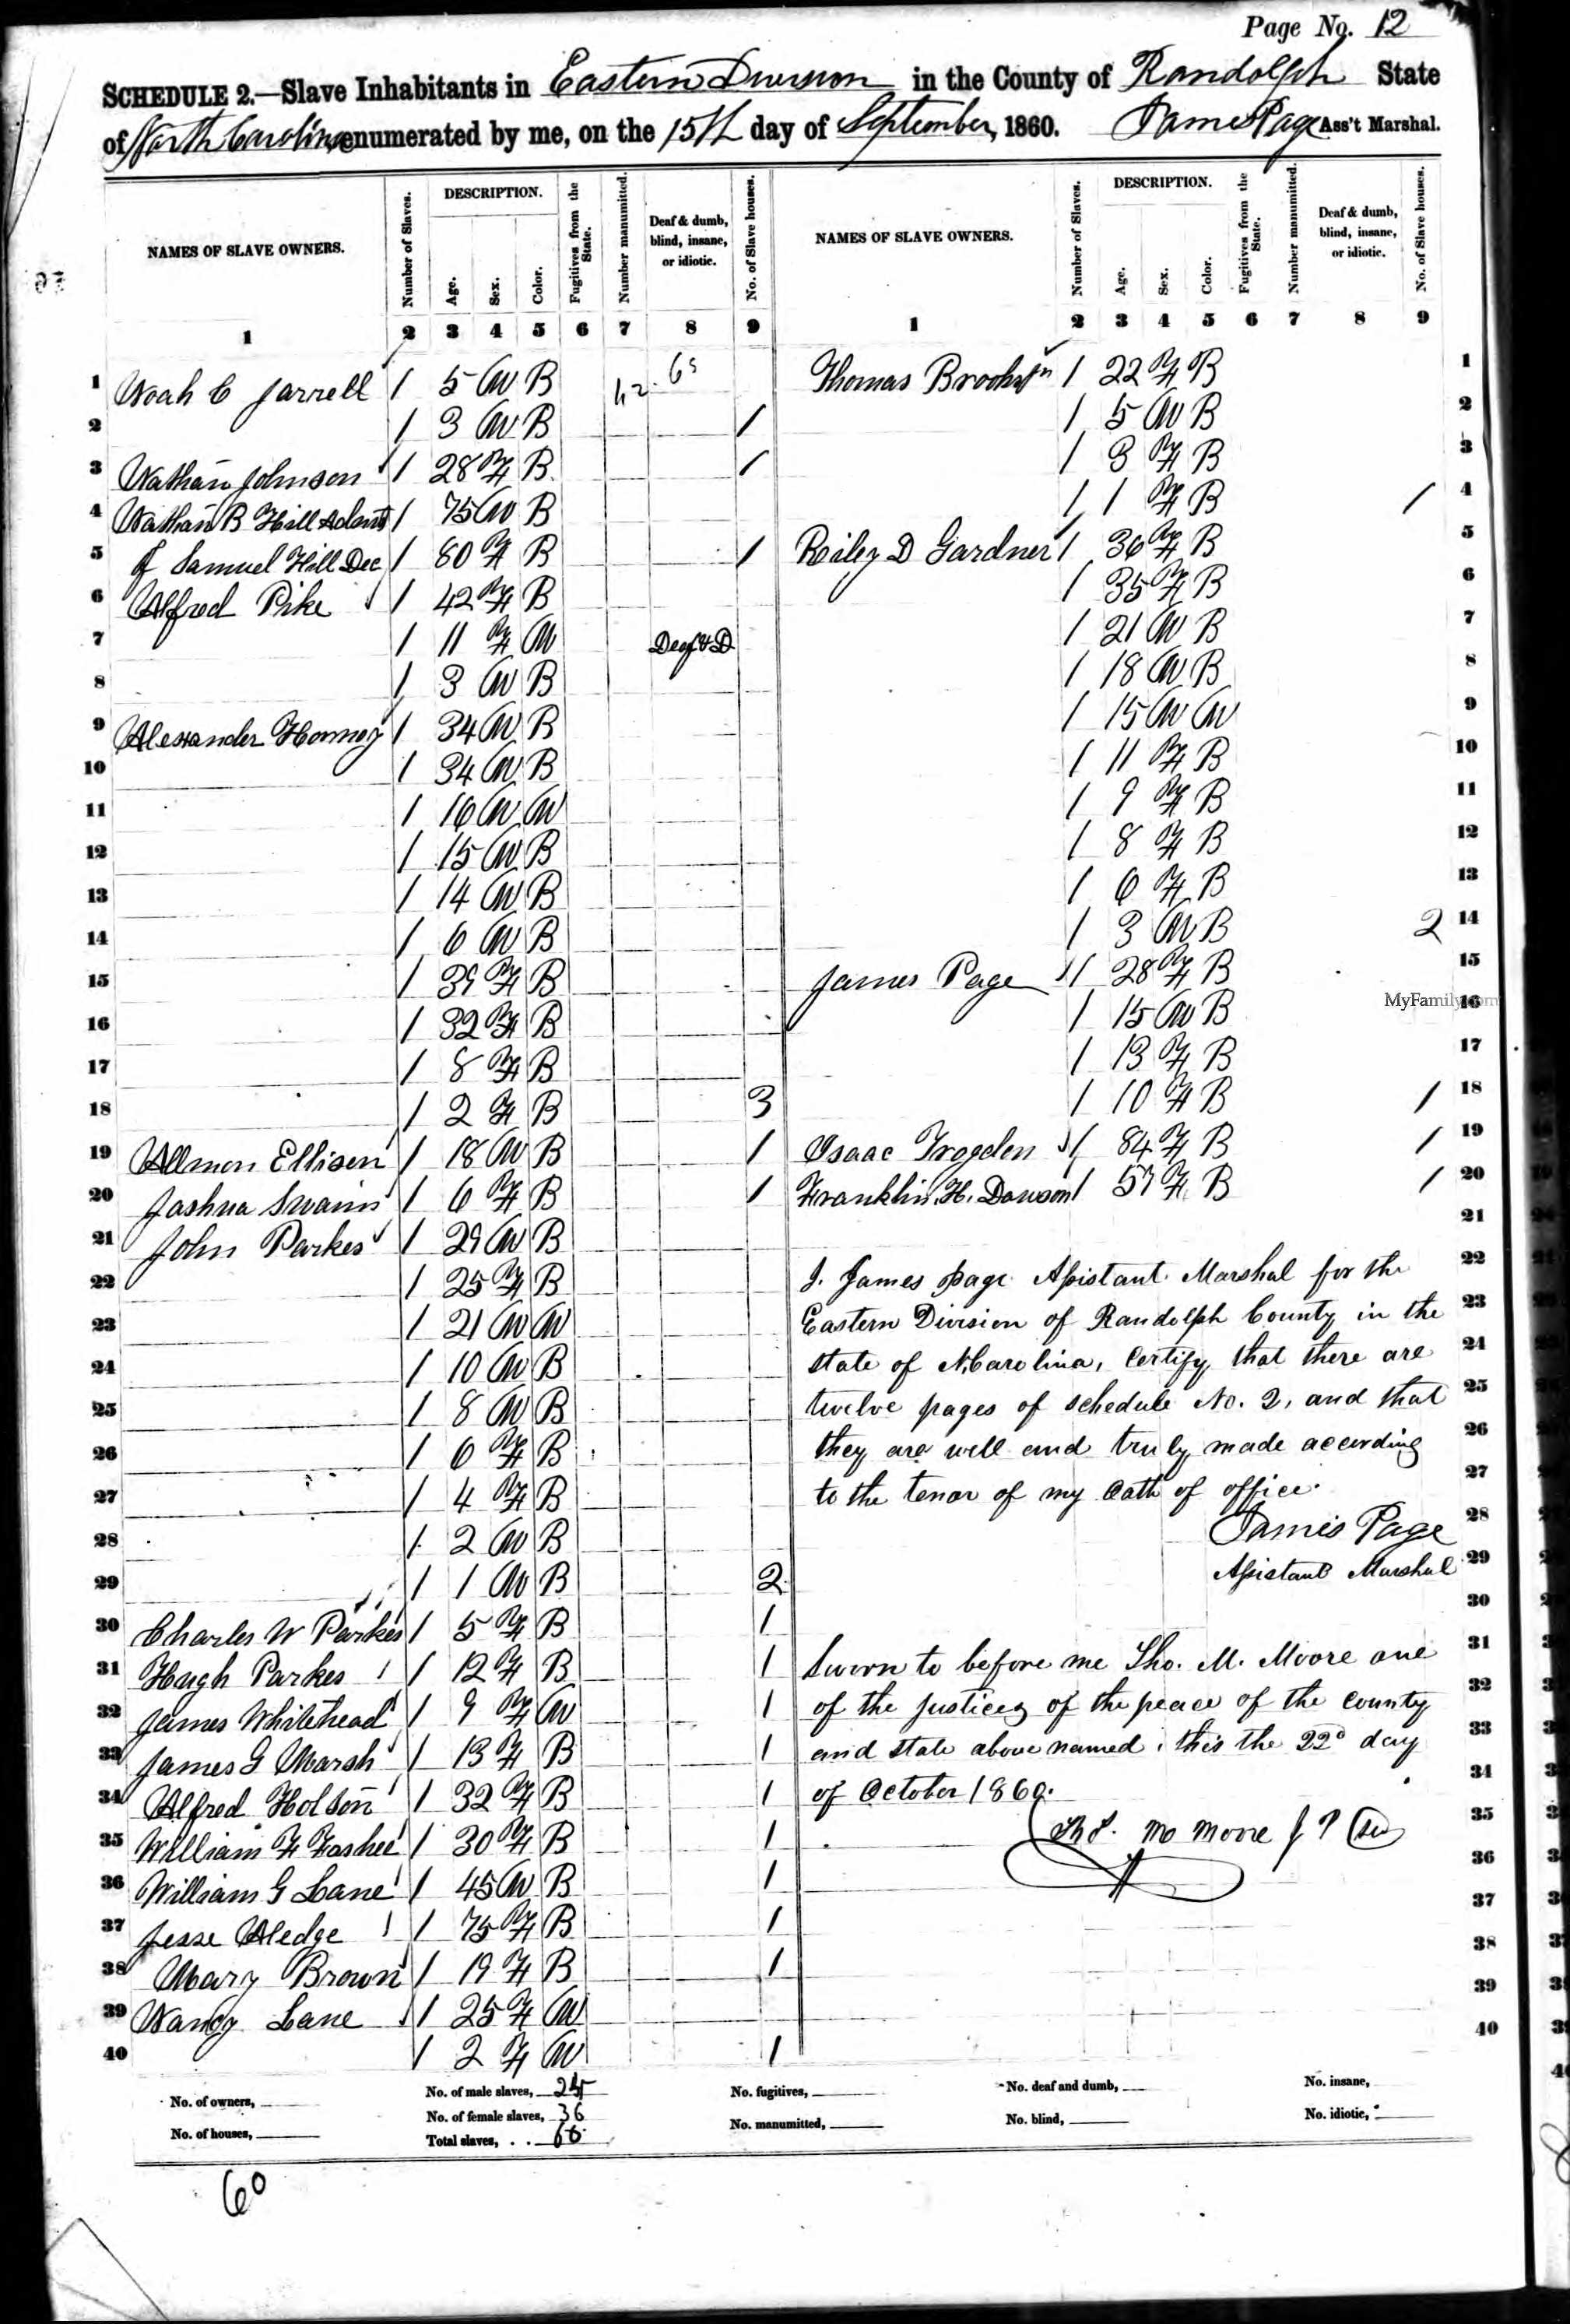 Page No. 12
SCHEDULE 2.—Slave Inhabitants in Eastern Division in the County of Randolph State
of North Carolina enumerated by me, on the 15th day of September, 1860. James Page Ass't Marshal.
NAMES OF SLAVE OWNERS. Number of Slaves. DESCRIPTION. Age. Sex. Color. Fugitives from the State. Number manumitted. Deaf & dumb, blind, insane, or idiotic. No. of Slave houses.
1 2 3 4 5 6 7 8 9
1 Noah C Jarrell 1 5 M B
2 1 3 M B 1
3 Nathan Johnson 1 28 F B 1
4 Nathan B Hill 1 75 M B
5 of Samuel Hill Dec 1 80 F B 1
6 Alfred Pike 1 42 F B
7 1 11 F M Deaf & D
8 1 3 M B
9 Alexander 1 34 M B
10 1 34 M B
11 1 16 M M
12 1 15 M B
13 1 14 M B
14 1 6 M B
15 1 39 F B
16 1 32 F B
17 1 8 F B
18 1 2 F B 3
19 Allmon Ellison 1 18 M B 1
20 Joshua Swaim 1 6 F B 1
21 John Parkes 1 29 M B
22 1 25 F B
23 1 21 M M
24 1 10 M B
25 1 8 M B
26 1 6 F B
27 1 4 F B
28 1 2 M B
29 1 1 M B 2
30 Charles W Parkes 1 5 F B 1
31 Hugh Parkes 1 12 F B 1
32 James Whitehead 1 9 F M 1
33 James G Marsh 1 13 F B 1
34 Alfred Holson 1 32 F B 1
35 William F Foshee 1 30 F B 1
36 William G Lane 1 45 M B 1
37 Jesse 1 75 F B 1
38 Mary Brown 1 19 F B 1
39 Nancy Lane 1 25 F M
40 1 2 F M 1
NAMES OF SLAVE OWNERS. Number of Slaves. DESCRIPTION. Age. Sex. Color. Fugitives from the State. Number manumitted. Deaf & dumb, blind, insane, or idiotic. No. of Slave houses.
1 2 3 4 5 6 7 8 9
Thomas 1 22 F B 1
1 5 M B 2
1 3 F B 3
1 1 F B 1 4
Riley D Gardner 1 36 F B 5
1 35 F B 6
1 21 M B 7
1 18 M B 8
1 15 M M 9
1 11 F B 10
1 9 F B 11
1 8 F B 12
1 6 F B 13
1 3 M B 2 14
James Page 1 28 F B 15
1 15 M B 16
MyFamily.com
1 13 F B 17
1 10 F B 1 18
Isaac Trogden 1 84 F B 1 19
Franklin H. Dawson 1 57 F B 1 20
21
I. James Page Assistant Marshal for the 22
Eastern Division of Randolph County in the 23
state of N.Carolina, Certify that there are 24
twelve pages of schedule No. 2, and that 25
they are well and truly made according 26
to the tenor of my Oath of office. 27
James Page 28
Assistant Marshal 29
30
Sworn to before me Tho. M. Moore one 31
of the Justices of the peace of the County 32
and state above named, this the 22d day 33
of October 1860. 34
Moore J P 35
36
37
38
39
40
No. of owners, No. of male slaves, No. fugitives, No. deaf and dumb, No. insane,
No. of houses, No. of female slaves, 36 No. manumitted, No. blind, No. idiotic,
Total slaves, . .
60